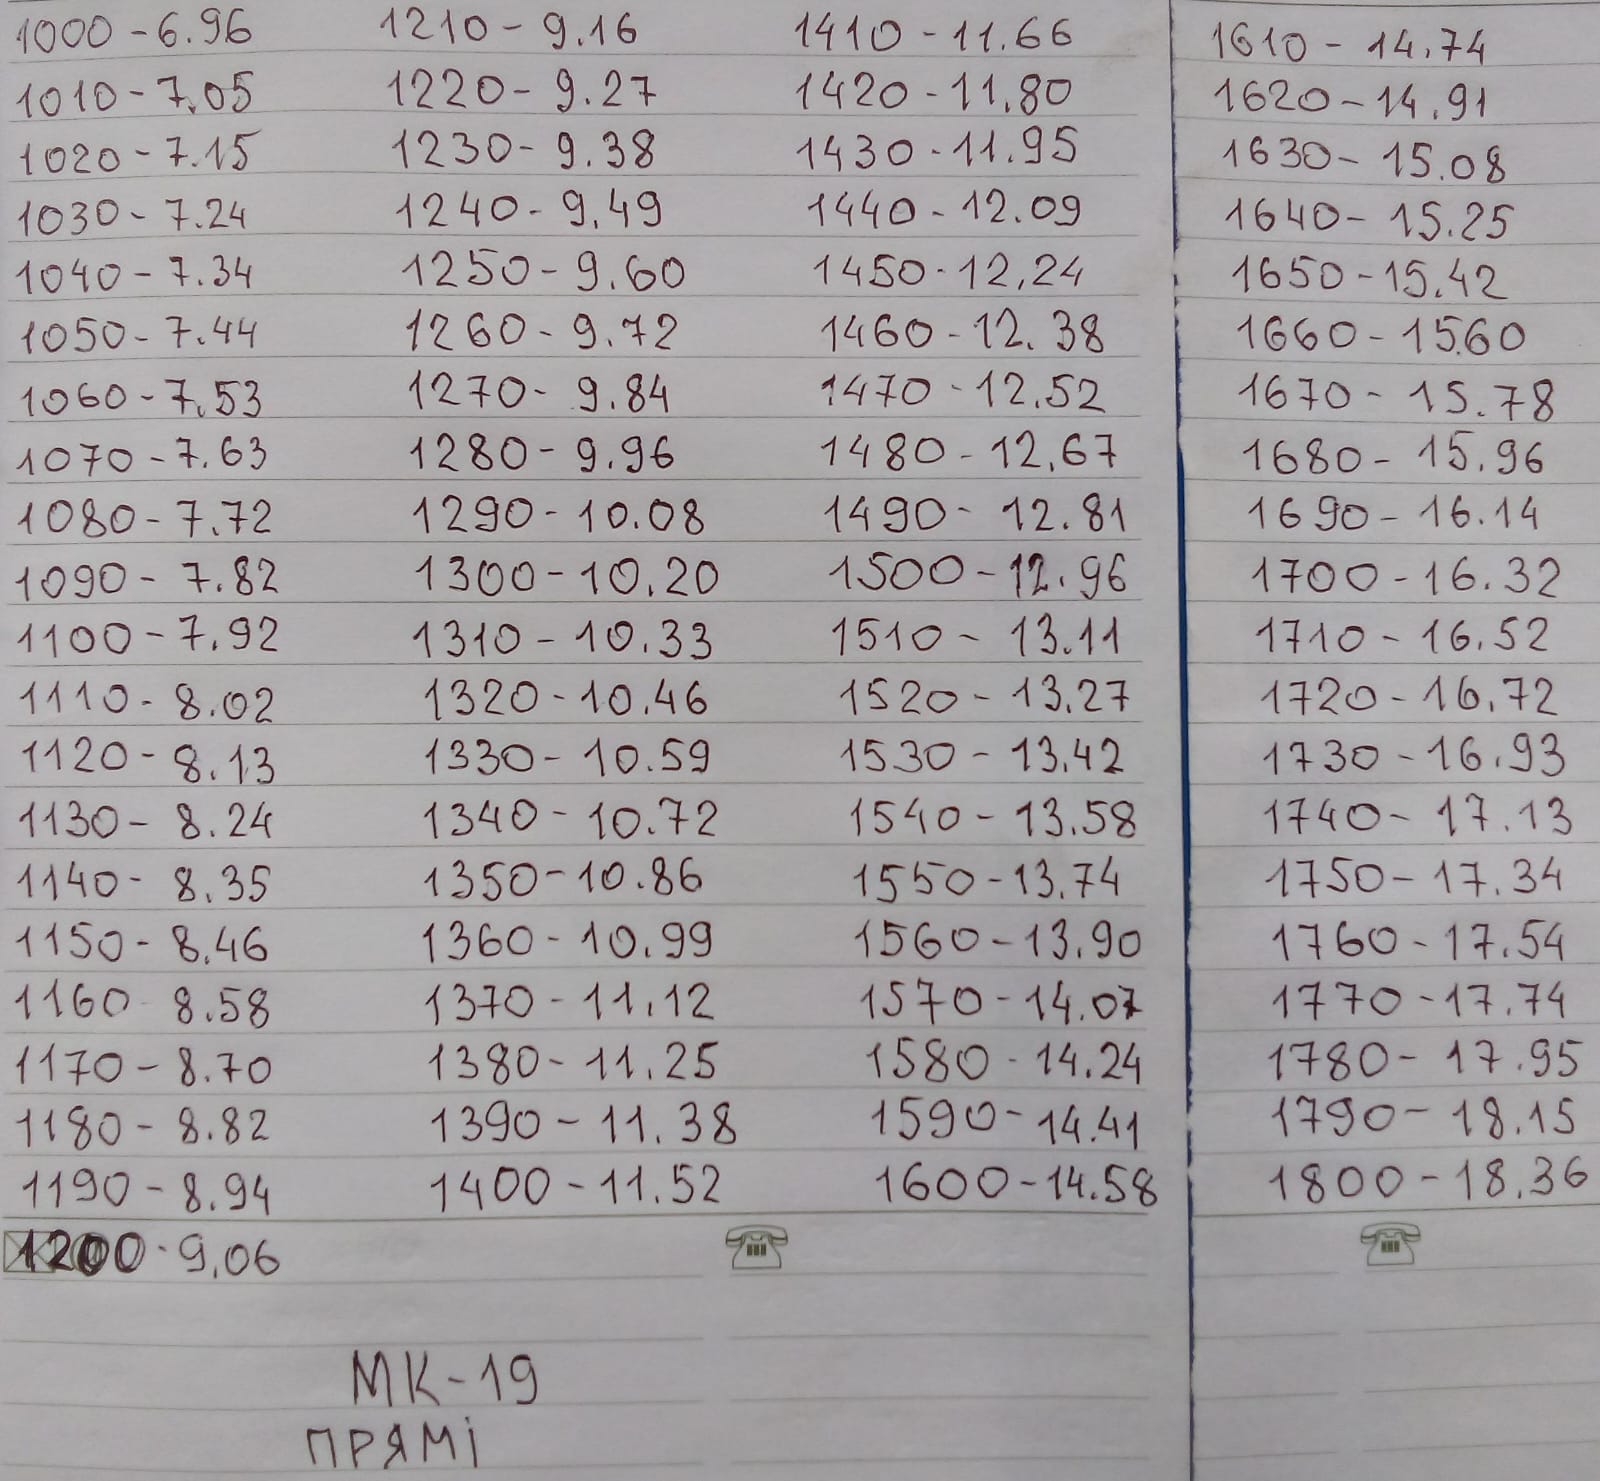 1000 - 6.96
1010 - 7.05
1020 - 7.15
1030 - 7.24
1040 - 7.34
1050 - 7.44
1060 - 7.53
1070 - 7.63
1080 - 7.72
1090 - 7.82
1100 - 7.92
1110 - 8.02
1120 - 8.13
1130 - 8.24
1140 - 8.35
1150 - 8.46
1160 - 8.58
1170 - 8.70
1180 - 8.82
1190 - 8.94
1200 - 9,06
1210 - 9.16
1220 - 9.27
1230 - 9.38
1240 - 9,49
1250 - 9.60
1260 - 9.72
1270 - 9.84
1280 - 9.96
1290 - 10.08
1300 - 10.20
1310 - 10.33
1320 - 10.46
1330 - 10.59
1340 - 10.72
1350 - 10.86
1360 - 10.99
1370 - 11.12
1380 - 11.25
1390 - 11.38
1400 - 11.52
1410 - 11.66
1420 - 11.80
1430 - 11.95
1440 - 12.09
1450 - 12,24
1460 - 12.38
1470 - 12.52
1480 - 12.67
1490 - 12.81
1500 - 12.96
1510 - 13.11
1520 - 13.27
1530 - 13.42
1540 - 13.58
1550 - 13.74
1560 - 13.90
1570 - 14.07
1580 - 14.24
1590 - 14.41
1600 - 14.58
1610 - 14.74
1620 - 14.91
1630 - 15.08
1640 - 15.25
1650 - 15.42
1660 - 15.60
1670 - 15.78
1680 - 15.96
1690 - 16.14
1700 - 16.32
1710 - 16.52
1720 - 16.72
1730 - 16.93
1740 - 17.13
1750 - 17.34
1760 - 17.54
1770 - 17.74
1780 - 17.95
1790 - 18.15
1800 - 18.36
МК-19
ПРЯМІ